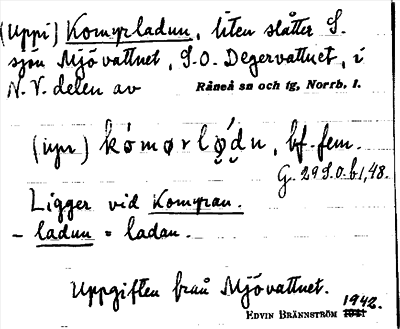 (Uppi) Komyrladun, liten slåtter S.
sjön Mjövattnet, S.O. Degervattnet, i
N.V. delen av Råneå sn och tg, Norrb. l.
(ɩpɩ) kómørlǫ́dụn, bf. fem.
G. 29 S.O. b 1, 48.
Ligger vid Komyran.
- ladun = ladan.
Uppgiften från Mjövattnet.
EDVIN BRÄNNSTRÖM 1942.